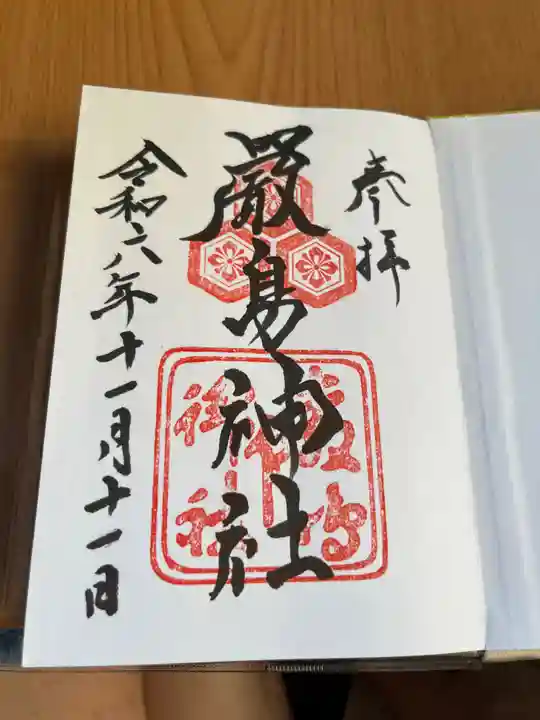 奉拝
嚴島神社
令和六年十一月十一日